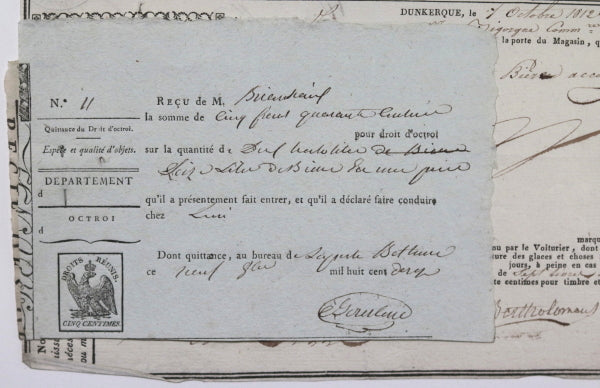 DUNKERQUE, le 7 Octobre 1812
la porte du Magasin,
N.° 11
REÇU de M.
la somme de Cinq francs quarante Centimes
Quittance du Droit d'octroi.
pour droit d'octroi
Espèce et qualité d'objets.
sur la quantité de hectolitre de Biere
Seize Litre de Biere
DEPARTEMENT
d
qu'il a présentement fait entrer, et qu'il a déclaré faire conduire
OCTROI
chez Lui
d
Dont quittance, au bureau de la porte
ce neuf 8bre mil huit cent douze
DROITS RÉUNIS.
CINQ CENTIMES.
marqu
nu par le Voiturier, dont
ture des glaces et choses
jours, à peine en cas
de Sept
te centimes pour timbre et
Bartholomeus
No
tisse
sécer
ou m